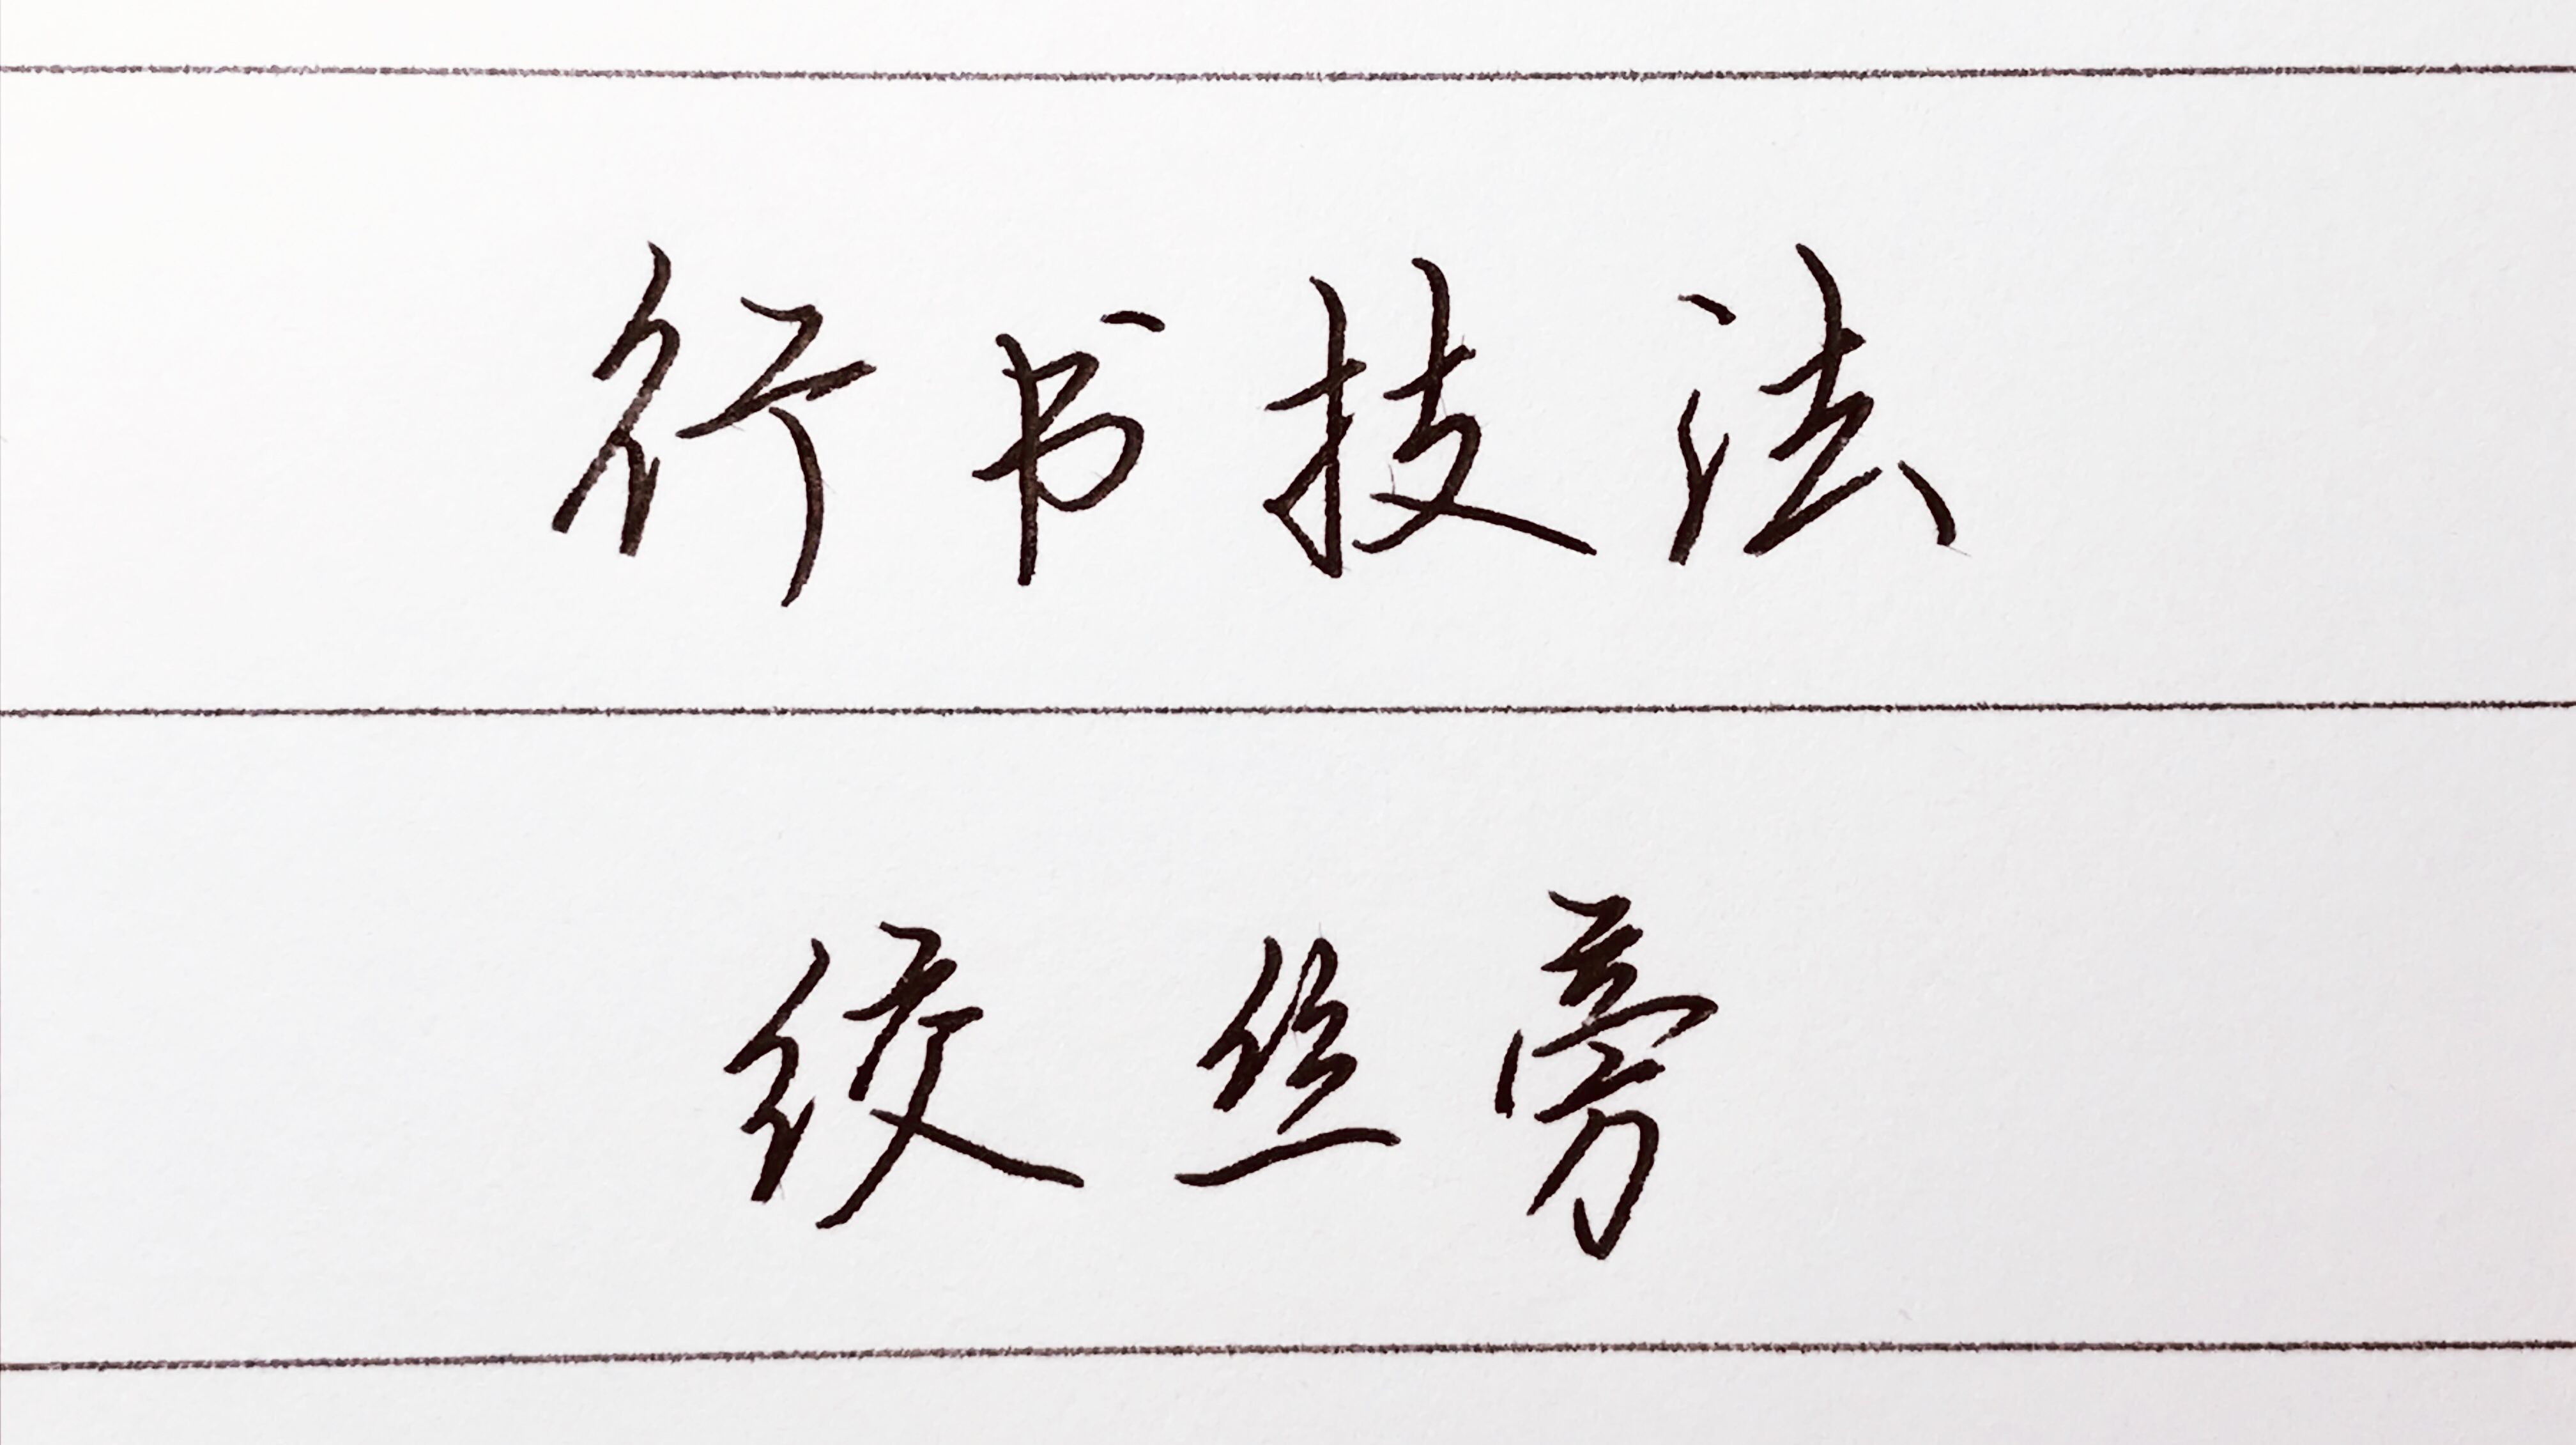 行书技法
绞丝旁